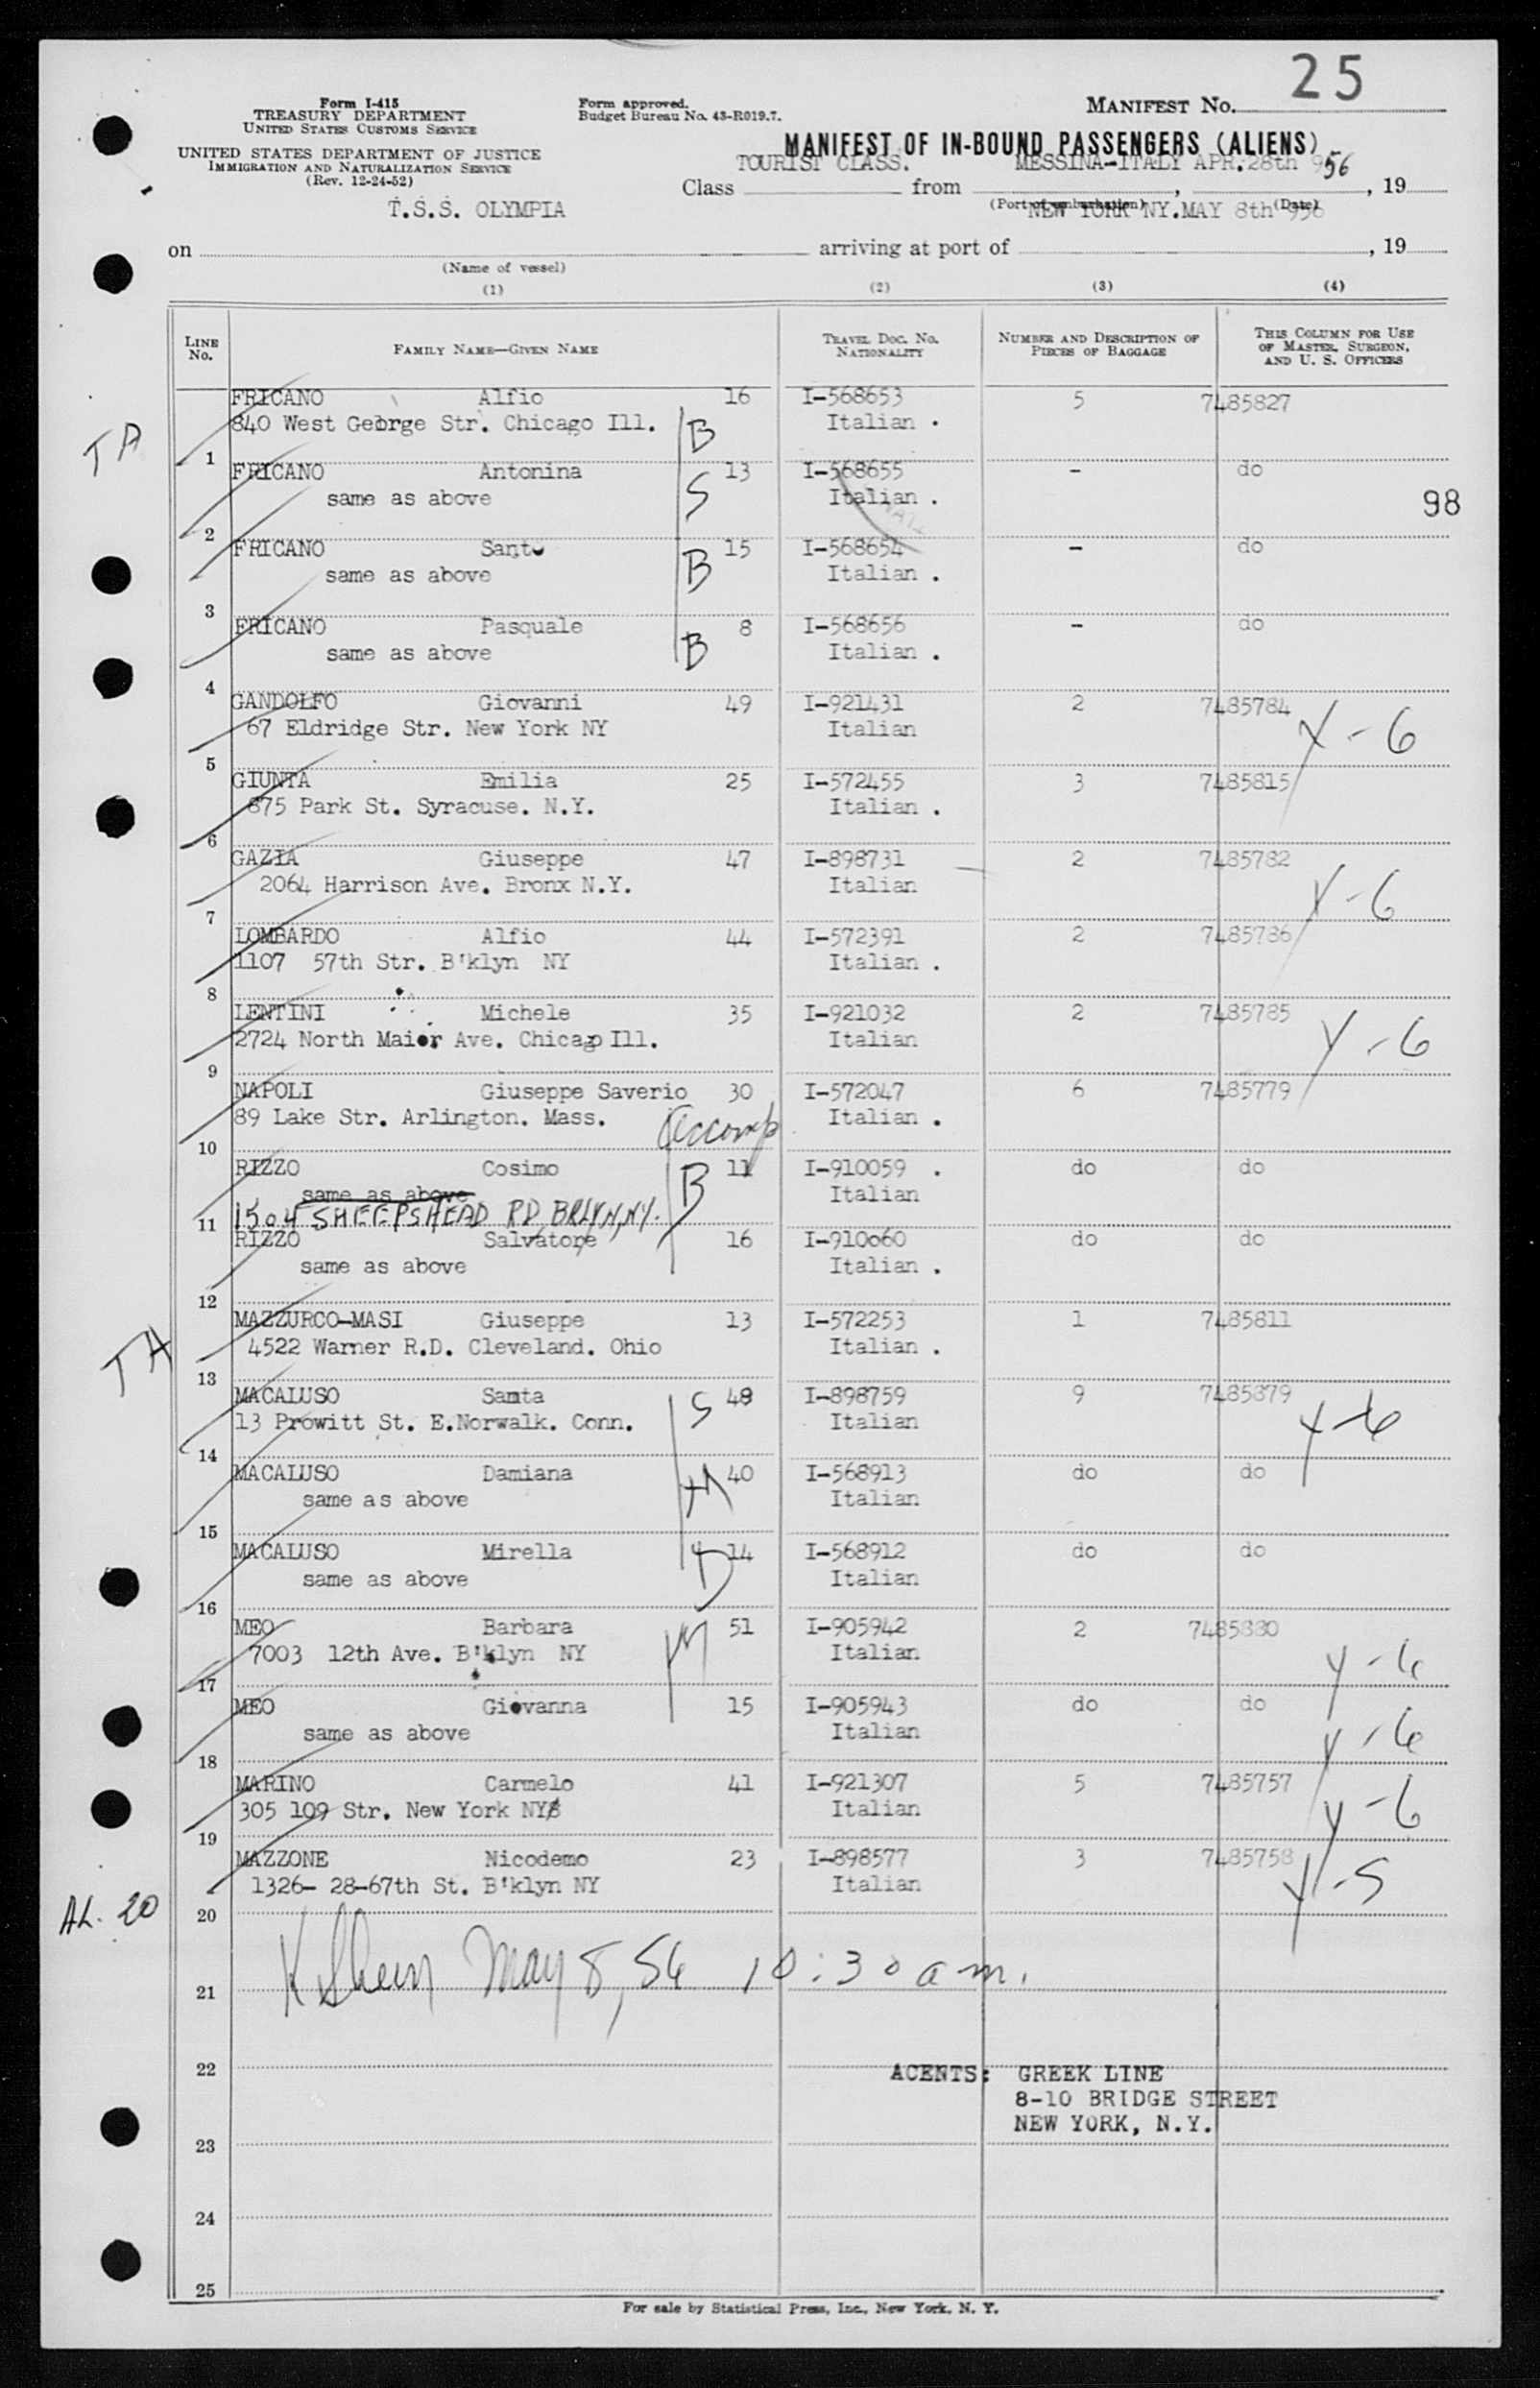 25
Form I-415
TREASURY DEPARTMENT
UNITED STATES CUSTOMS SERVICE
UNITED STATES DEPARTMENT OF JUSTICE
IMMIGRATION AND NATURALIZATION SERVICE
(Rev. 12-24-52)
Form approved.
Budget Bureau No. 43-R019.7.
MANIFEST NO.
MANIFEST OF IN-BOUND PASSENGERS (ALIENS)
TOURIST CLASS. MESSINA-ITALY APR.28th 956
Class from , , 19
(Port of embarkation) (Date)
T.S.S. OLYMPIA NEW YORK NY.MAY 8th 956
on arriving at port of , 19
(Name of vessel)
(1) (2) (3) (4)
LINE NO. FAMILY NAME—GIVEN NAME TRAVEL DOC. NO. NATIONALITY NUMBER AND DESCRIPTION OF PIECES OF BAGGAGE THIS COLUMN FOR USE OF MASTER, SURGEON, AND U. S. OFFICERS
FRICANO Alfio 16 I-568653 5 7485827
840 West George Str. Chicago Ill. B Italian .
TA
1
FRICANO Antonina 13 I-568655 - do
same as above S Italian .
98
2
FRICANO Santo 15 I-568654 - do
same as above B Italian .
3
FRICANO Pasquale 8 I-568656 - do
same as above B Italian .
4
GANDOLFO Giovanni 49 I-921431 2 7485784
67 Eldridge Str. New York NY Italian Y-6
5
GIUNTA Emilia 25 I-572455 3 7485815
875 Park St. Syracuse. N.Y. Italian .
6
GAZIA Giuseppe 47 I-898731 2 7485782
2064 Harrison Ave. Bronx N.Y. Italian Y-6
7
LOMBARDO Alfio 44 I-572391 2 7485786
1107 57th Str. B'klyn NY Italian .
8
LENTINI Michele 35 I-921032 2 7485785
2724 North Maior Ave. Chicago Ill. Italian Y-6
9
NAPOLI Giuseppe Saverio 30 I-572047 6 7485779
89 Lake Str. Arlington. Mass. Accomp Italian .
10
RIZZO Cosimo 11 I-910059 . do do
same as above B Italian
11 1504 SHEEPSHEAD RD, BRLYN, NY.
RIZZO Salvatore 16 I-910060 do do
same as above Italian .
12
MAZZURCO-MASI Giuseppe 13 I-572253 1 7485811
4522 Warner R.D. Cleveland. Ohio Italian .
TA
13
MACALUSO Santa S 48 I-898759 9 7485879
13 Prowitt St. E.Norwalk. Conn. Italian Y-6
14
MACALUSO Damiana 40 I-568913 do do
same as above Italian
15
MACALUSO Mirella D 14 I-568912 do do
same as above Italian
16
MEO Barbara M 51 I-905942 2 7485880
7003 12th Ave. B'klyn NY Italian Y-6
17
MEO Giovanna 15 I-905943 do do
same as above Italian Y-6
18
MARINO Carmelo 41 I-921307 5 7485757
305 109 Str. New York NY Italian Y-6
19
MAZZONE Nicodemo 23 I-898577 3 7485758
1326- 28-67th St. B'klyn NY Italian Y-5
AL. 20
20
May 8, 56 10:30 am.
21
22
ACENTS: GREEK LINE
8-10 BRIDGE STREET
NEW YORK, N.Y.
23
24
25
For sale by Statistical Press, Inc., New York, N. Y.